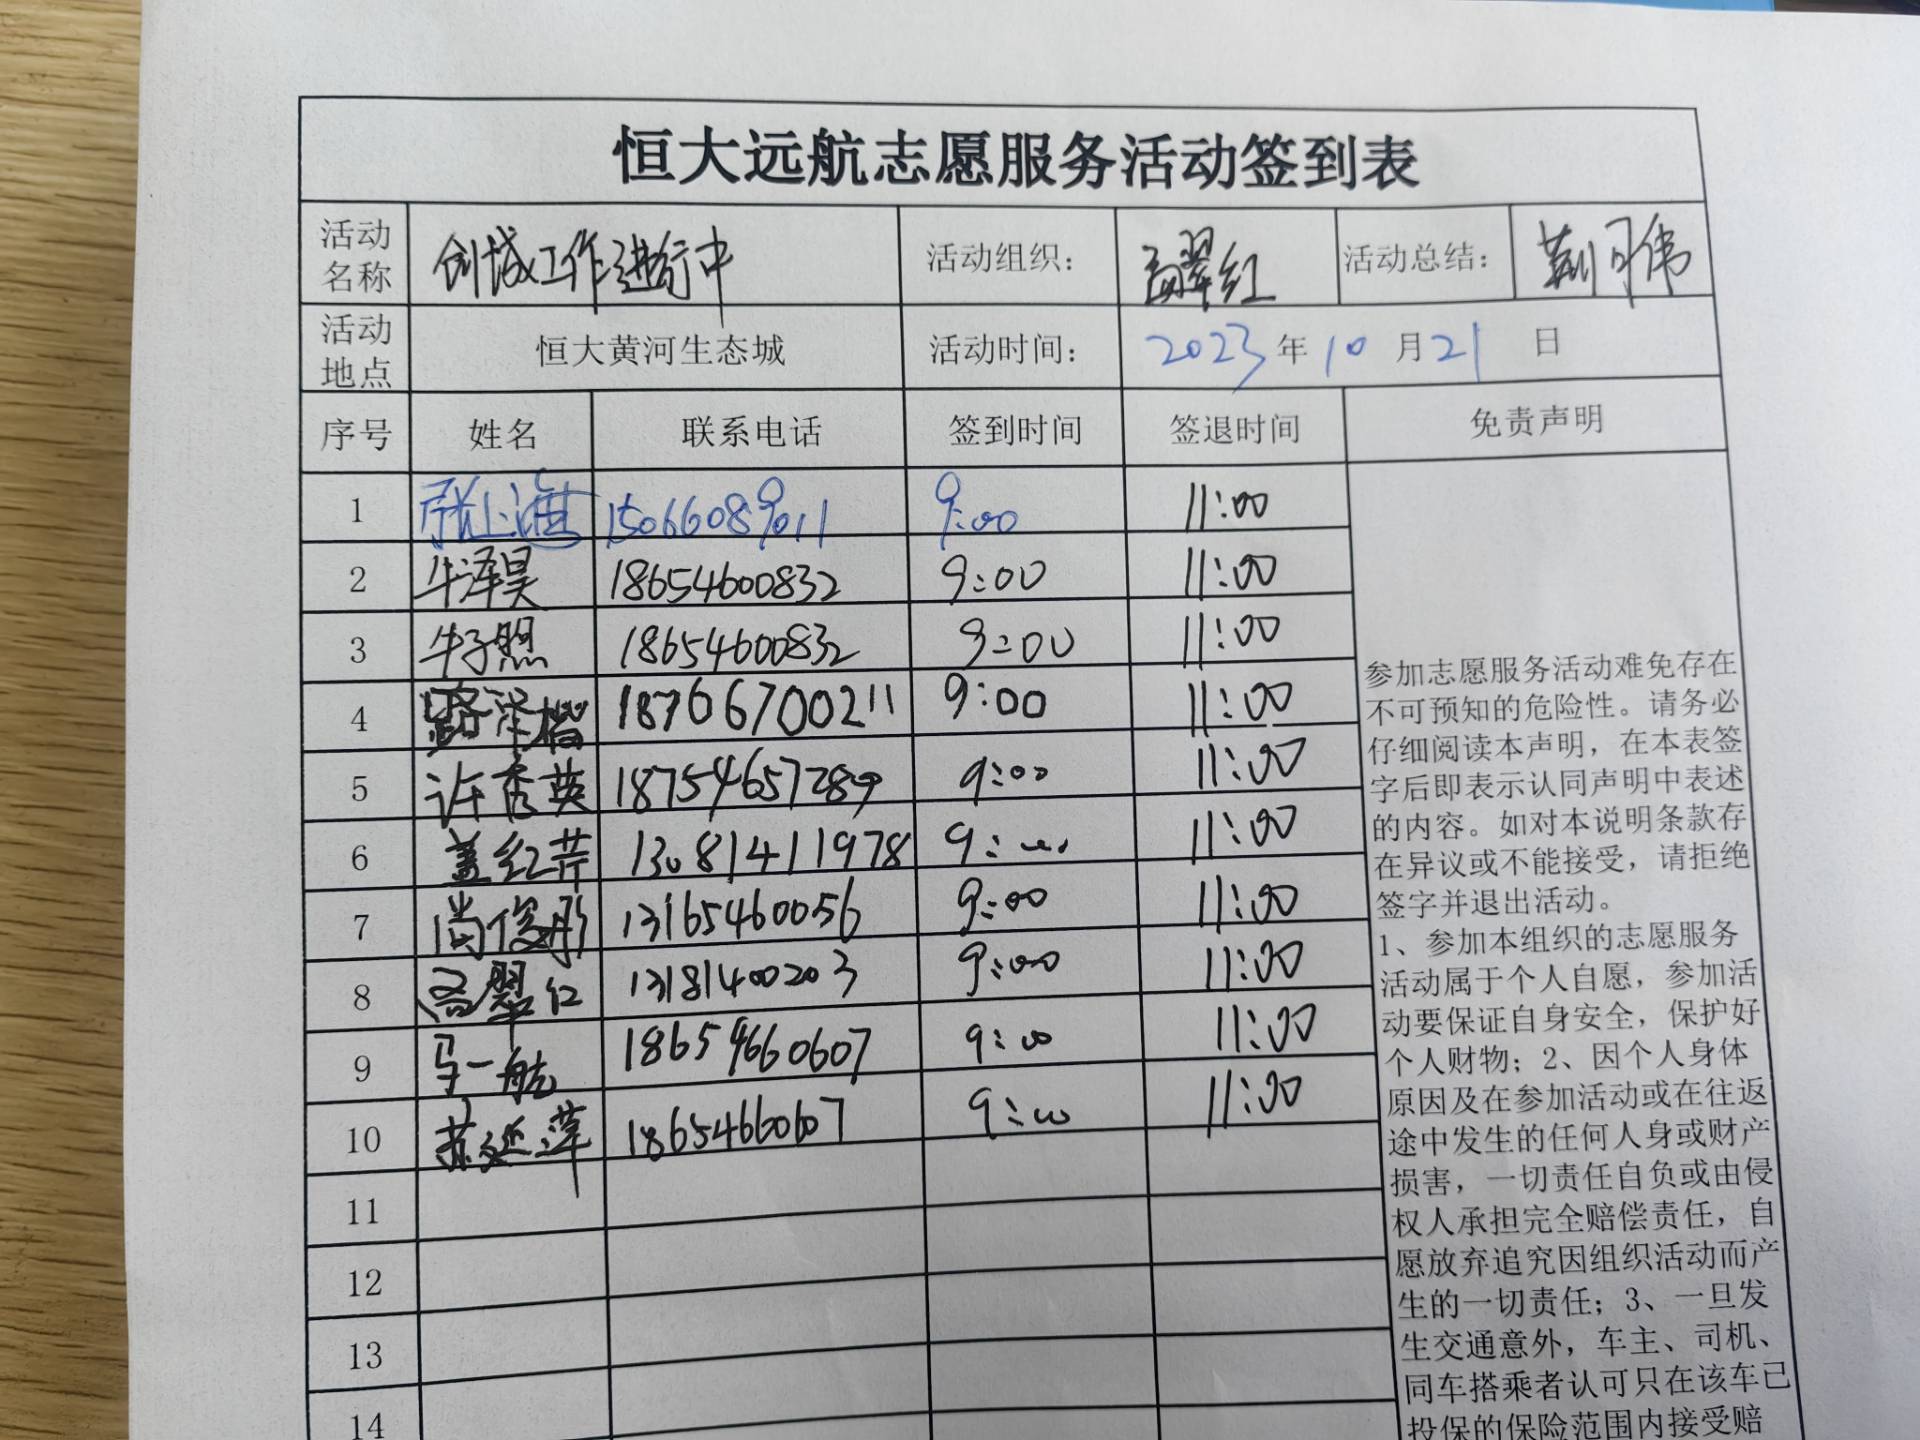 恒大远航志愿服务活动签到表
活动名称 创城工作进行中 活动组织： 孟翠红 活动总结： 荆可伟
活动地点 恒大黄河生态城 活动时间： 2023年10月21日
序号 姓名 联系电话 签到时间 签退时间 免责声明
1 张上 15066089011 9:00 11:00
2 牛泽昊 18654600832 9:00 11:00
3 牛子煦 18654600832 9:00 11:00
4 路泽楷 18766700211 9:00 11:00
5 许秀英 18754657289 9:00 11:00
6 盖红芹 13081411978 9:00 11:00
7 尚俊彤 13165460056 9:00 11:00
8 孟翠红 13181400203 9:00 11:00
9 马一航 18654660607 9:00 11:00
10 苏延萍 18654660607 9:00 11:00
11
12
13
14
参加志愿服务活动难免存在
不可预知的危险性。请务必
仔细阅读本声明，在本表签
字后即表示认同声明中表述
的内容。如对本说明条款存
在异议或不能接受，请拒绝
签字并退出活动。
1、参加本组织的志愿服务
活动属于个人自愿，参加活
动要保证自身安全，保护好
个人财物；2、因个人身体
原因及在参加活动或在往返
途中发生的任何人身或财产
损害，一切责任自负或由侵
权人承担完全赔偿责任，自
愿放弃追究因组织活动而产
生的一切责任；3、一旦发
生交通意外，车主、司机、
同车搭乘者认可只在该车已
投保的保险范围内接受赔